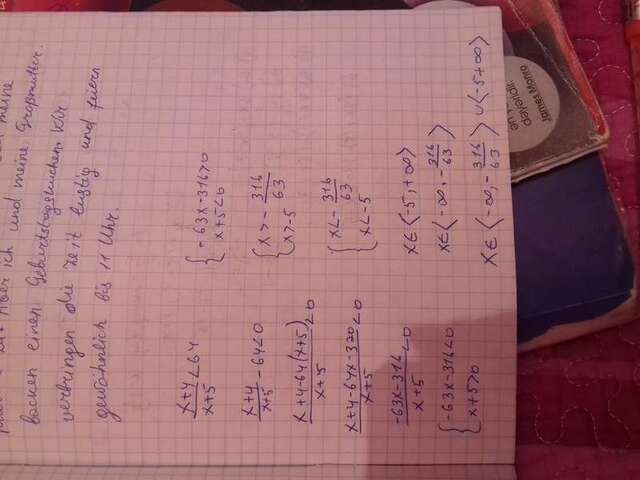 aber ich und meine
backen einen Geburtstagskuchen. Wir
verbringen die Zeit lustig und feiern
gewöhnlich bis 11 Uhr.
x+4/x+5 < 64
x+4/x+5 - 64 < 0
x+4-64(x+5)/x+5 < 0
x+4-64x-320/x+5 < 0
-63x-316/x+5 < 0
{ -63x-316<0
x+5>0
{ -63x-316>0
x+5<0
{ x > - 316/63
x > -5
{ x < - 316/63
x < -5
x ∈ ⟨-5, +∞⟩
x ∈ ⟨-∞, - 316/63⟩
x ∈ ⟨-∞, - 316/63⟩ ∪ ⟨-5 +∞⟩
James Monro